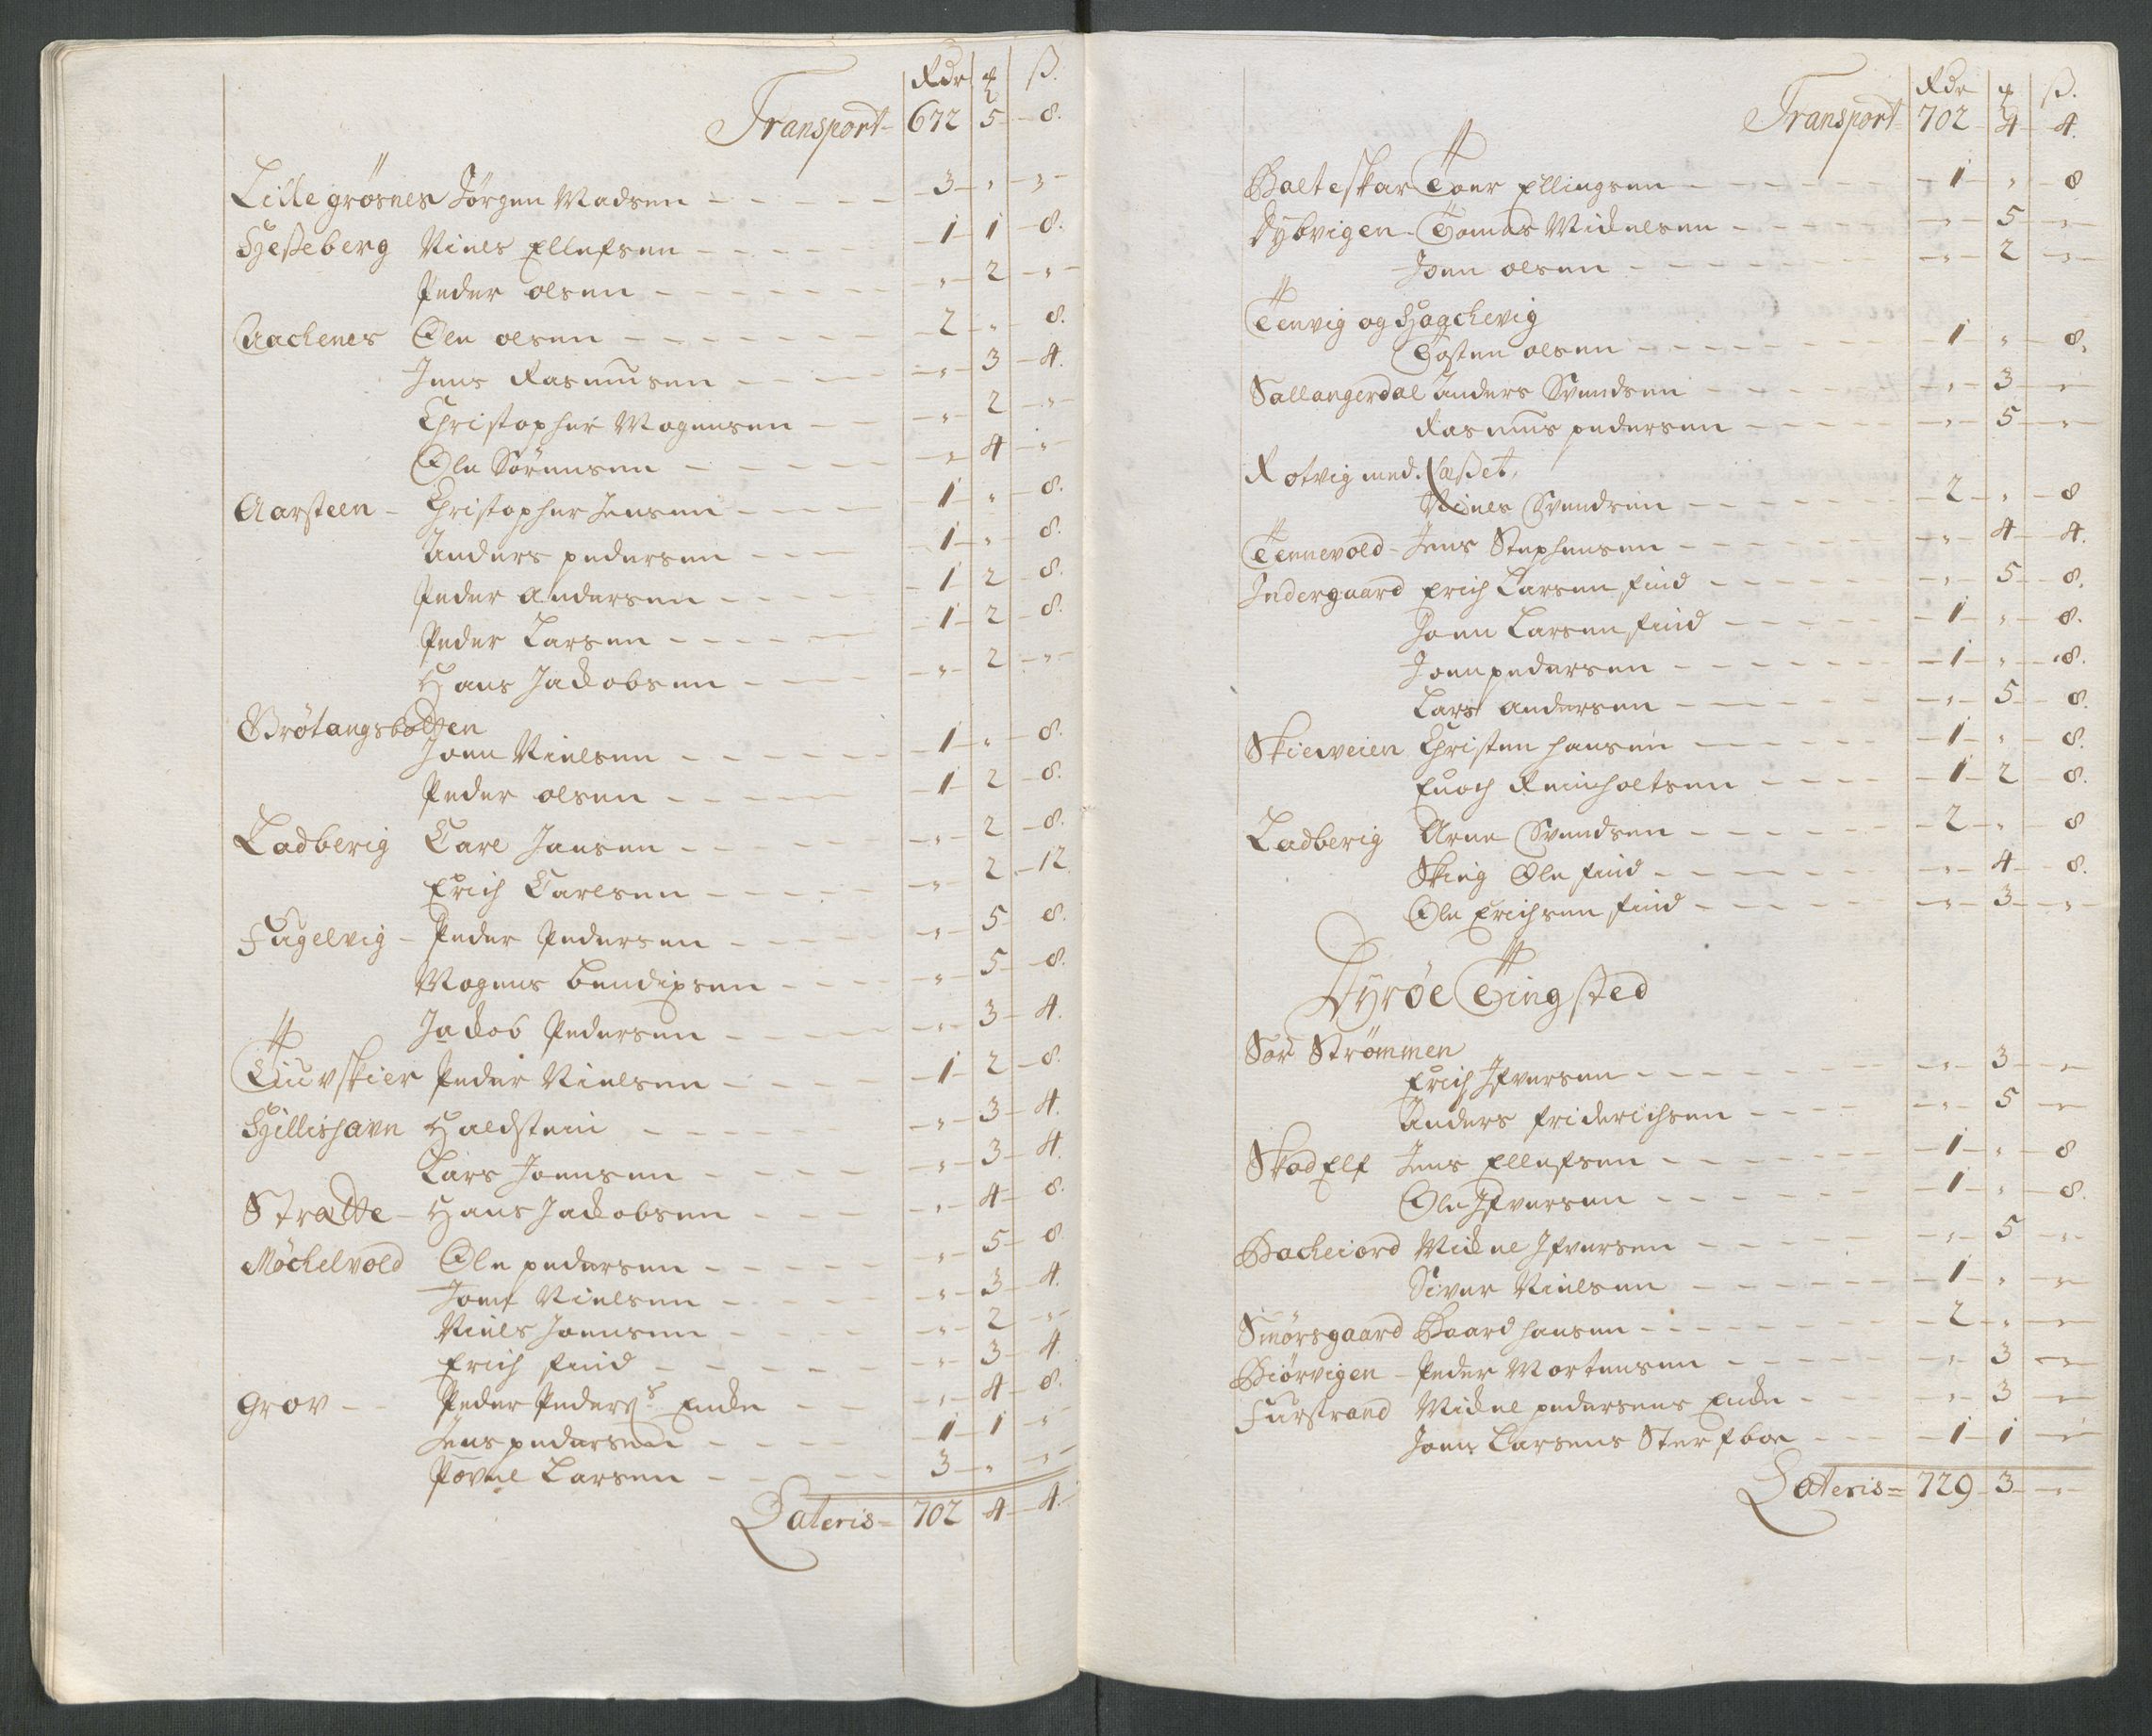 Rdr ꝶ ß.
Transport- 672 5 - 8.
Lille grösnes Jörgen Madsen - - - - - 3 - " - 3 -
Hesseberg Niels Ellefsen - - - - 1 - 1 - 8.
Peder olsen - - - - - - " - 2 - " -
Aachenes Ole olsen - - - - - - 2 - " - 8.
Jens Rasmusen - - - - " - 3 - 4.
Christopher Mogensen - - " - 2 - " -
Ole Sörensen - - - - - " - 4 - " -
Aarsteen - Christopher Jensen - - - - 1 - " - 8.
Anders pedersen - - - 1 - " - 8.
Peder andersen - - - - 1 2 - 8.
Peder Larsen - - - - - 1 - 2 - 8.
Hans Jackobsen - - - - " - 2 - " -
Brötangsbotten
Joen Nielsen - - - - - 1 - " - 8.
Peder olsen - - - - - 1 - 2 - 8.
Ladberig Carl Jansen - - - - - " - 2 - 8.
Erich Carlsen - - - - - " - 2 - 12
Fugelvig - Peder Pedersen - - - - " - 5 - 8.
Mogens Bendixsen - - - - " - 5 - 8.
Jackob Pedersen - - - - " - 3 - 4.
Tiuvskier Peder Nielsen - - - - 1 - 2 - 8.
Hillishavn Haldstein - - - - " - 3 - 4.
Lars Joensen - - - - " - 3 - 4.
Strætte - Hans Jackobsen - - - " - 4 - 8.
Möchelvold Ole pedersen - - - - - " - 5 - 8
Joen Nielsen - - - - " - 3 - 4.
Niels Joensen - - - - " - 2 - " -
Erich find - - - - - " - 3 - 4.
Grov - - Peder Peders: Encke - - " - 4 - 8.
Jens pedersen - - - - 1 1 - " -
Povel Larsen - - - - 3 - " - " -
Lateris = 702 4 - 4 -
Rdr ꝶ ß.
Transport 702 - 4 - 4.
Balteskar Toer Ellingsen - - - - - 1 - " - 8
Dybvigen - Tomas Mickelsen - - - - - " - 5 - " -
Joen olsen - - - - - - " - 2 - " -
Tenvig og Hagchevig
Tosten olsen - - - - - - 1 - " - 8.
Sallangerdal Anders Svendsen - - - - " - 3 - " -
Rasmus pedersen - - - - " - 5 - " -
Rotvig med.
Niels Svendsen - - - - - 2 - " - 8
Tennevold - Jens Stephensen - - - - - " - 4 - 4.
Indergaard Erich Larsen find - - - - " - 5 - 8.
Joen Larsen find - - - - - 1 - " - 8.
Joen pedersen - - - - - - 1 - " - 8.
Lars andersen - - - - - " - 5 - 8.
Skieveien Christen hansen - - - - - 1 - " - 8.
Enoch Reinholtsen - - - - 1 - 2 - 8.
Ladberig Arne Svendsen - - - - - 2 - " - 8
Skieg Ole find - - - - - " - 4 - 8.
Ole Erichsen find - - - - - " - 3 - " -
Dyröe Tingsted
Sör Strömmen
Erich Ifversen - - - - - - " - 3 - " -
Anders friderichsen - - - - " - 5 - " -
Skod Elf Jens Ellefsen - - - - - - 1 - " - 8
Ole Ifversen - - - - - - 1 - " - 8.
Bacheiord Mickel Ifversen - - - - - " - 5 - " -
Siver Nielsen - - - - - - 1 - " - " -
Smörsgaard Baard hansen - - - - - - 2 - " - " -
Biörvigen - Peder Mortensen - - - - - " - 3 - " -
Furstrand Mickel pedersens Encke - - " - 3 - " -
Joen Larsens Sterfboe - - - 1 - 1 - " -
Lateris = 729 - 3 - " -